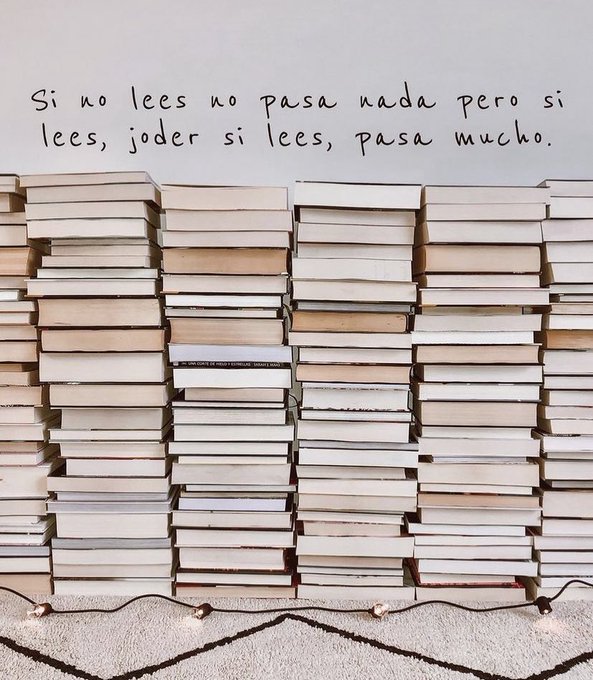 Si no lees no pasa nada pero si
lees, joder si lees, pasa mucho.
UNA CORTE DE HIELO Y ESTRELLAS SARAH J. MAAS